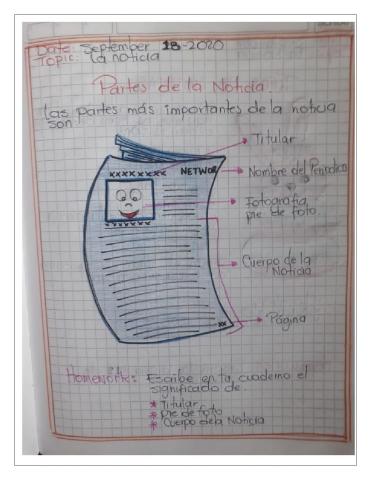 Date: September 18-2020
Topic: La noticia
Partes de la Noticia.
Las partes más importantes de la noticia
son
Titular
xxxxxxxx NETWOR
Nombre del Periodico
Fotografia,
pie de foto.
xxxxxxx
Cuerpo de la
Noticia
Página
xx
Homework: Escribe en tu cuaderno el
significado de.
* Titular
* Pie de foto
* Cuerpo dela Noticia